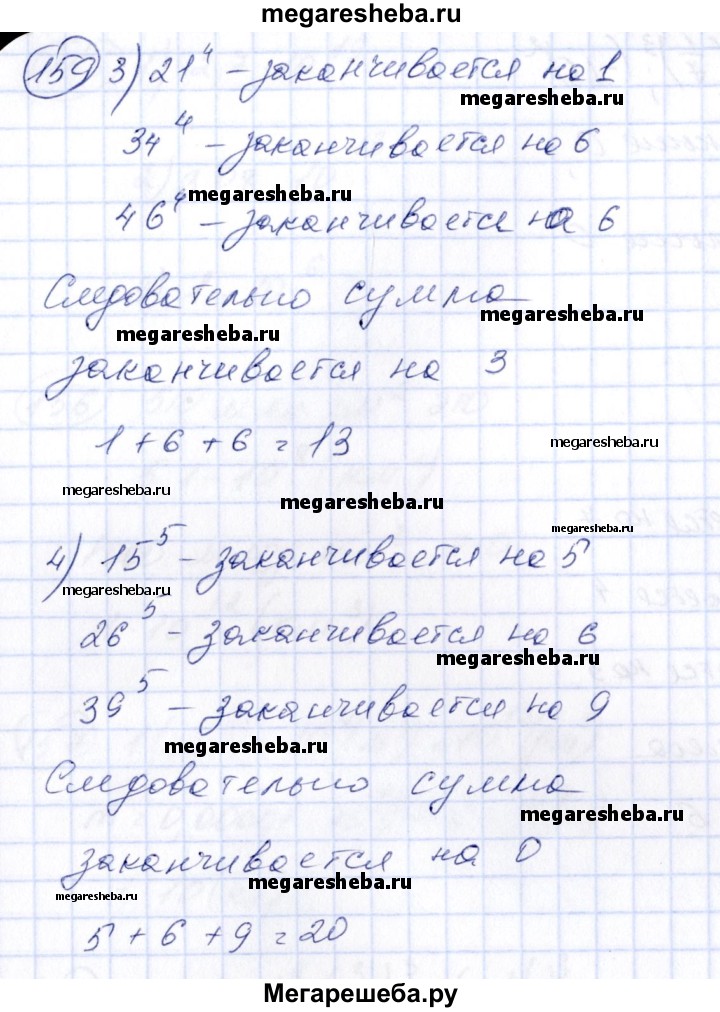 megaresheba.ru
159 3) 21⁴ – заканчивается на 1
megaresheba.ru
34⁴ – заканчивается на 6
megaresheba.ru
46⁴ – заканчивается на 6
Следовательно сумма
megaresheba.ru
megaresheba.ru
заканчивается на 3
1 + 6 + 6 = 13
megaresheba.ru
megaresheba.ru
megaresheba.ru
megaresheba.ru
4) 15⁵ – заканчивается на 5
megaresheba.ru
26⁵ – заканчивается на 6
megaresheba.ru
39⁵ – заканчивается на 9
megaresheba.ru
Следовательно сумма
megaresheba.ru
заканчивается на 0
megaresheba.ru
megaresheba.ru
5 + 6 + 9 = 20
Мегарешеба.ру